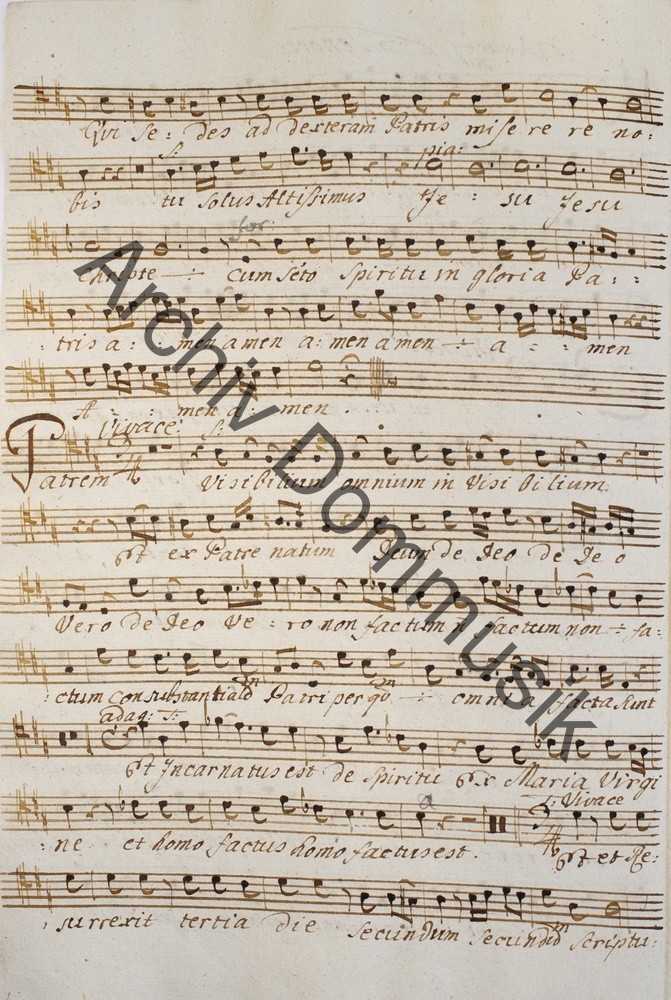 Qui se: des ad dexteram Patris mise re re no:
S: pia:
bis tu solus Altissimus Je: su Jesu
for:
Christe cum Scto Spiritu in gloria Pa::
:tris a:: men amen a: men amen a:: men
A:: men a: men.
Vivace: S:
Patrem Visibilium omnium in Visi bilium
et ex Patre natum Deum de Deo de Deo
Vero de Deo Ve: ro non factum factum non fa:
:ctum consubstantialem Patri per quem omnia facta sunt
adag: S:
et Incarnatus est de Spiritu ex Maria Virgi
Vivace
:ne et homo factus homo factus est. et et Re:
:surrexit tertia die secundum secundum scriptu:
Archiv Dommusik